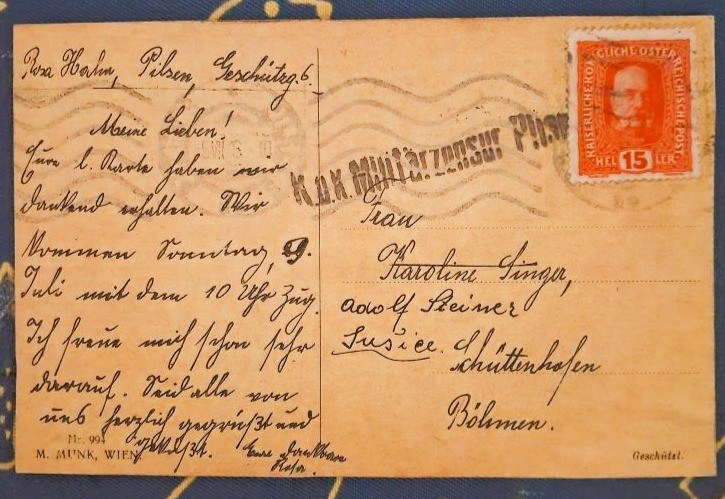 Rosa Hahn, Pilsen, Geschützg. 6
Meine Lieben!
Eure l. Karte haben wir
dankend erhalten. Wir
kommen Sonntag, 9.
Juli mit dem 10 Uhr Zug.
Ich freue mich schon sehr
darauf. Seid alle von
uns herzlich gegrüßt und
geküßt. Eure dankbare
Rosa.
Nr. 994
M. MUNK, WIEN.
K.u.K. Militärzensur Pilsen
KAISERLICHE KÖNIGLICHE ÖSTERREICHISCHE POST
HEL 15 LER
Frau
Karoline Singer,
Adolf Steiner
Sušice. Schüttenhofen
Böhmen.
Geschützt.